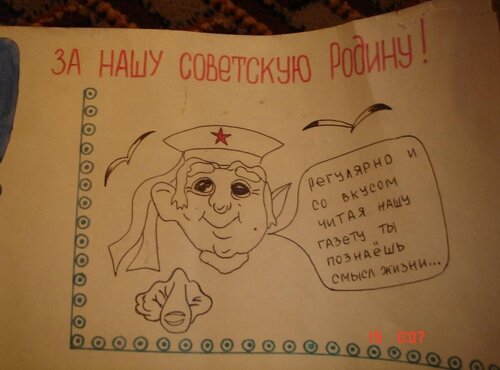 ЗА НАШУ СОВЕТСКУЮ РОДИНУ!
РЕГУЛЯРНО И
СО ВКУСОМ
ЧИТАЯ НАШУ
ГАЗЕТУ ТЫ
ПОЗНАЁШЬ
СМЫСЛ ЖИЗНИ...